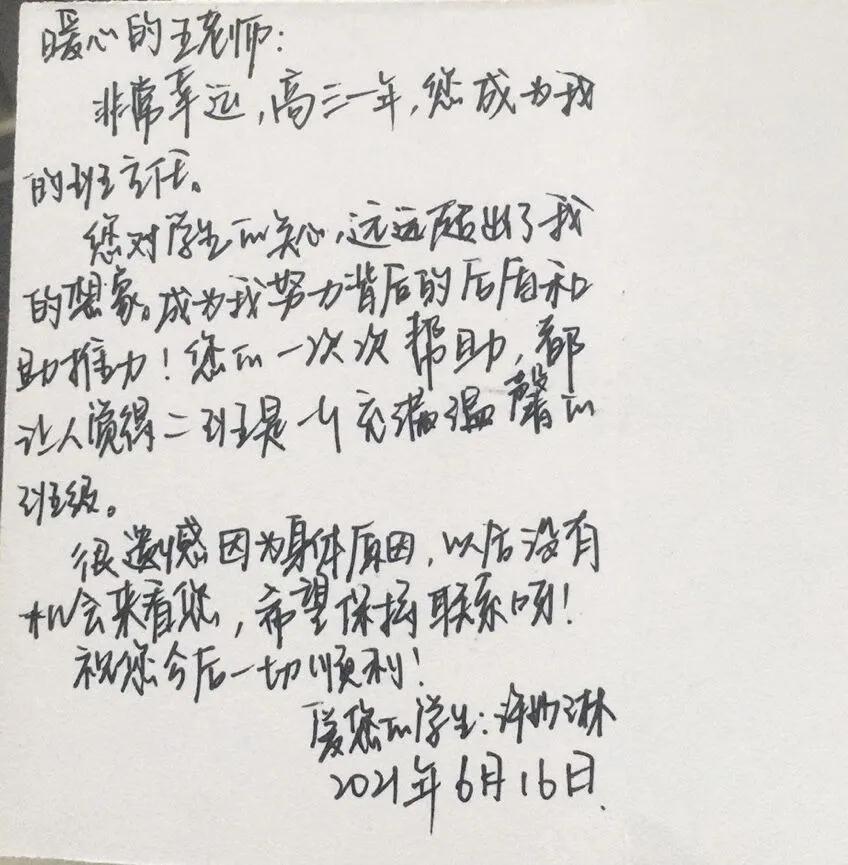 暖心的王老师:
非常幸运,高三一年,您成为我
的班主任。
您对学生的关心,远远超出了我
的想象。成为我努力背后的后盾和
助推力!您的一次次帮助,都
让人觉得二班是一个充满温馨的
班级。
很遗憾因为身体原因,以后没有
机会来看您,希望保持联系呀!
祝您今后一切顺利!
爱您的学生:许妙琳
2021年6月16日.